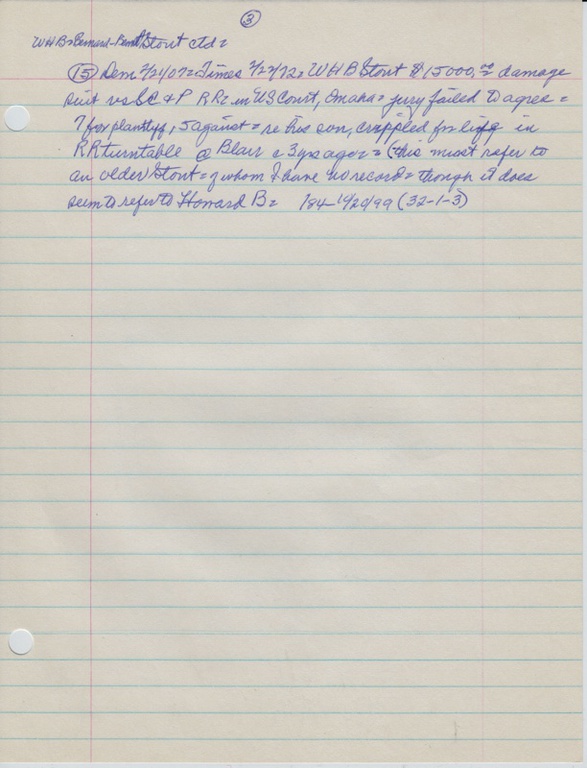 ③
WHB = Bernard - Stout ctd =
⑮ Dem 2/21/07 = Times 2/22/72 = WHB Stout $15000.00 damage
suit vs SC & P RR = in US Court, Omaha = jury failed to agree =
7 for plantiff, 5 against = re his son, crippled for life in
RR turntable @ Blair c 3 yrs ago = = (this must refer to
an older Stout = of whom I have no record = though it does
seem to refer to Howard B = 184 - 1/20/99 (32-1-3)